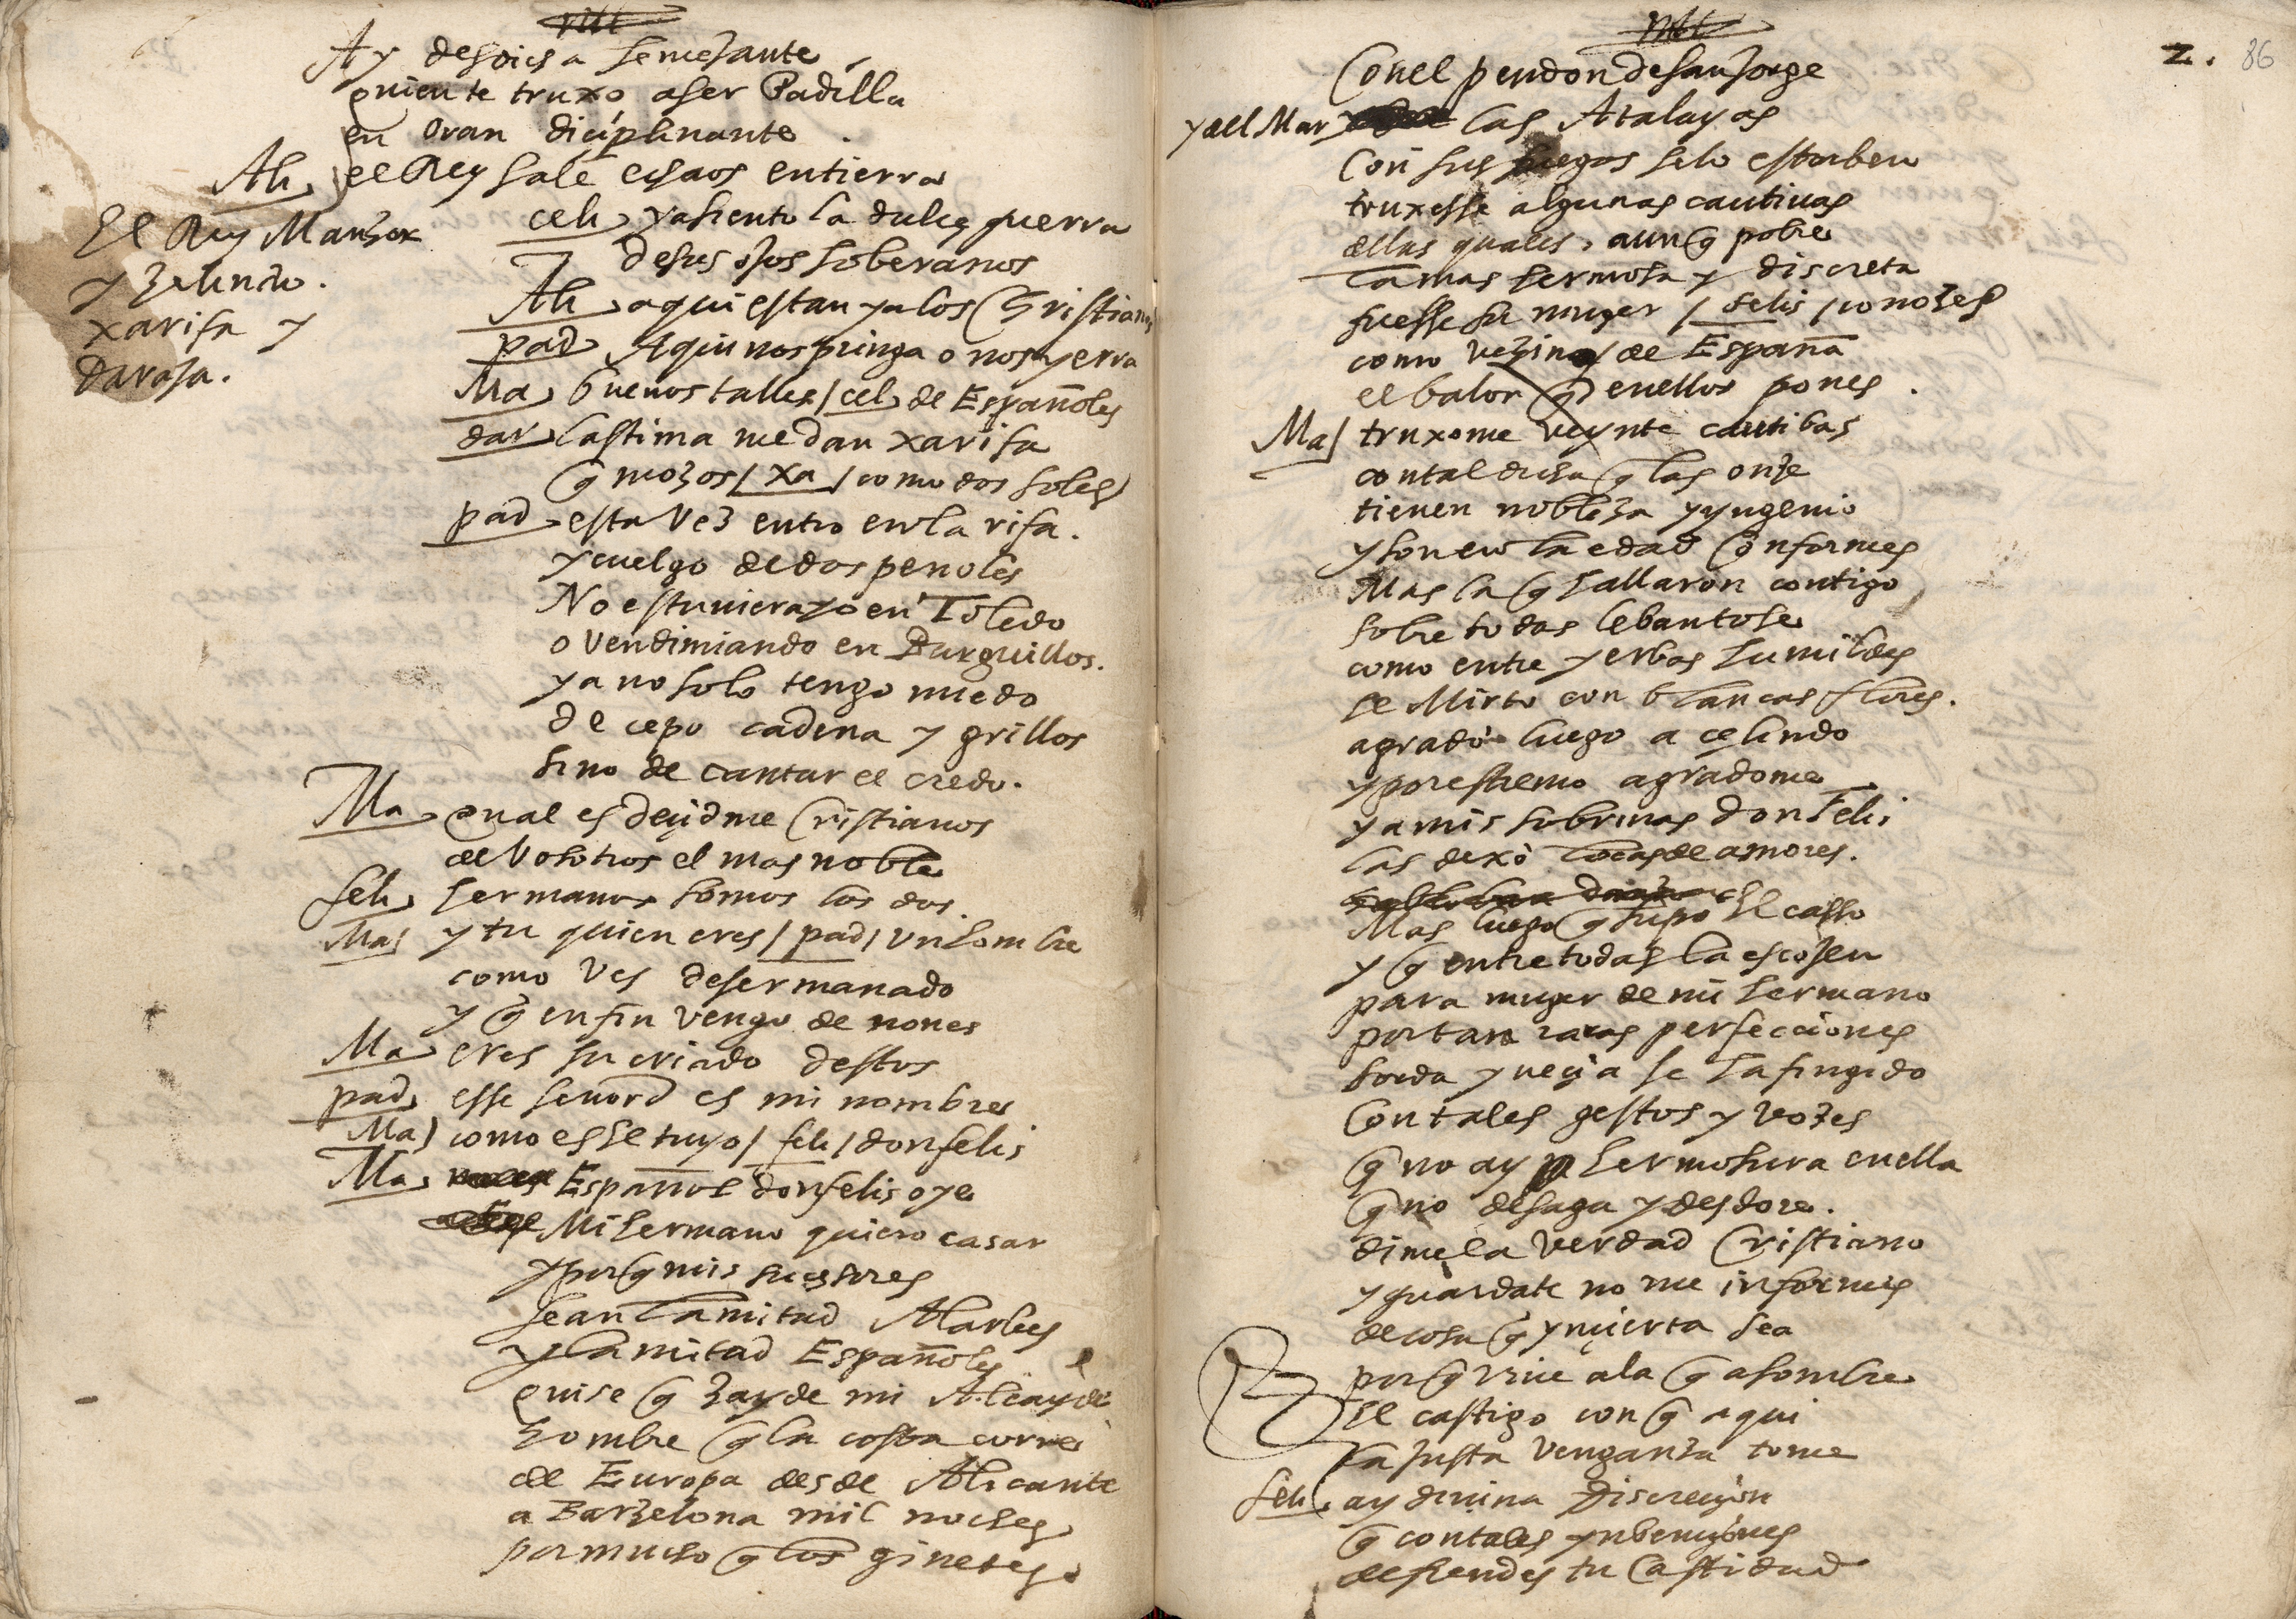 Ay desdicha semejante
quien te truxo a ser Padilla
en Oran diçiplinante.
Ali el Rey sale echaos en tierra
El Rey Manzor
y Zelindo.
xarifa y
Daraja.
celi ya siento la dulçe guerra
de sus ojos soberanos
Ali aqui estan ya los Christianos
pad Aqui nos pringa o nos yerra
Ma buenos talles / cel de Españoles
dar lastima me dan xarifa
q mozos / xa / como dos soles
pad esta Vez entro en la rifa.
y cuelgo de dos penoles
No estuviera yo en Toledo
o Vendimiando en Burguillos.
ya no solo tengo miedo
de cepo cadena y grillos
sino de cantar el credo.
Ma qual es deçidme Cristianos
de Vosotros el mas noble
feli hermanos somos los dos.
Ma y tu quien eres / pad / Un hombre
como Ves deshermanado
y q en fin vengo de nones
Ma eres su criado destos
pad esse señor es mi nombre
Ma como es el tuyo / feli / don felis
Ma Español don felis oye
Mi hermano quiero casar
y por q mis suçesores
sean la mitad Alarbes
y la mitad Españoles
quise q Zayde mi Alcayde
hombre q la costa corre
de Europa desde Alicante
a Barzelona mil noches
por mucho q los ginetes
2. 86
Con el pendon de San Jorge
y del Mar las Atalayas
Con sus fuegos se lo estorben
truxesse algunas cautivas
de las quales, aunq pobre
la mas hermosa y discreta
fuesse su muger / felis / conozes
como vezino de España
el balor q en ellos pones.
Ma truxome veynte cautibas
con tal dicha q las onze
tienen nobleza y yngenio
y son en la edad Conformes
Mas la q hallaron contigo
sobre todas lebantose
como entre yerbas humildes
el Mirto con blancas flores.
agradò luego a çelindo
y por estremo agradome
y a mis sobrinas don Felis
las dexò locas de amores.
Mas luego q supo el casso
y q entre todas la escojen
para muger de mi hermano
por tan raras perfecciones
sorda y neçia se ha fingido
Con tales gestos y vozes
q no ay hermosura en ella
q no deshaga y desdore.
dime la verdad Cristiano
y guardate no me informes
de cosa q ynçierta sea
por q vive ala q asombre
el castigo con q aqui
la justa venganza tome
feli ay divina Discreçion
q con tales ynbençiones
defiendes tu Castidad